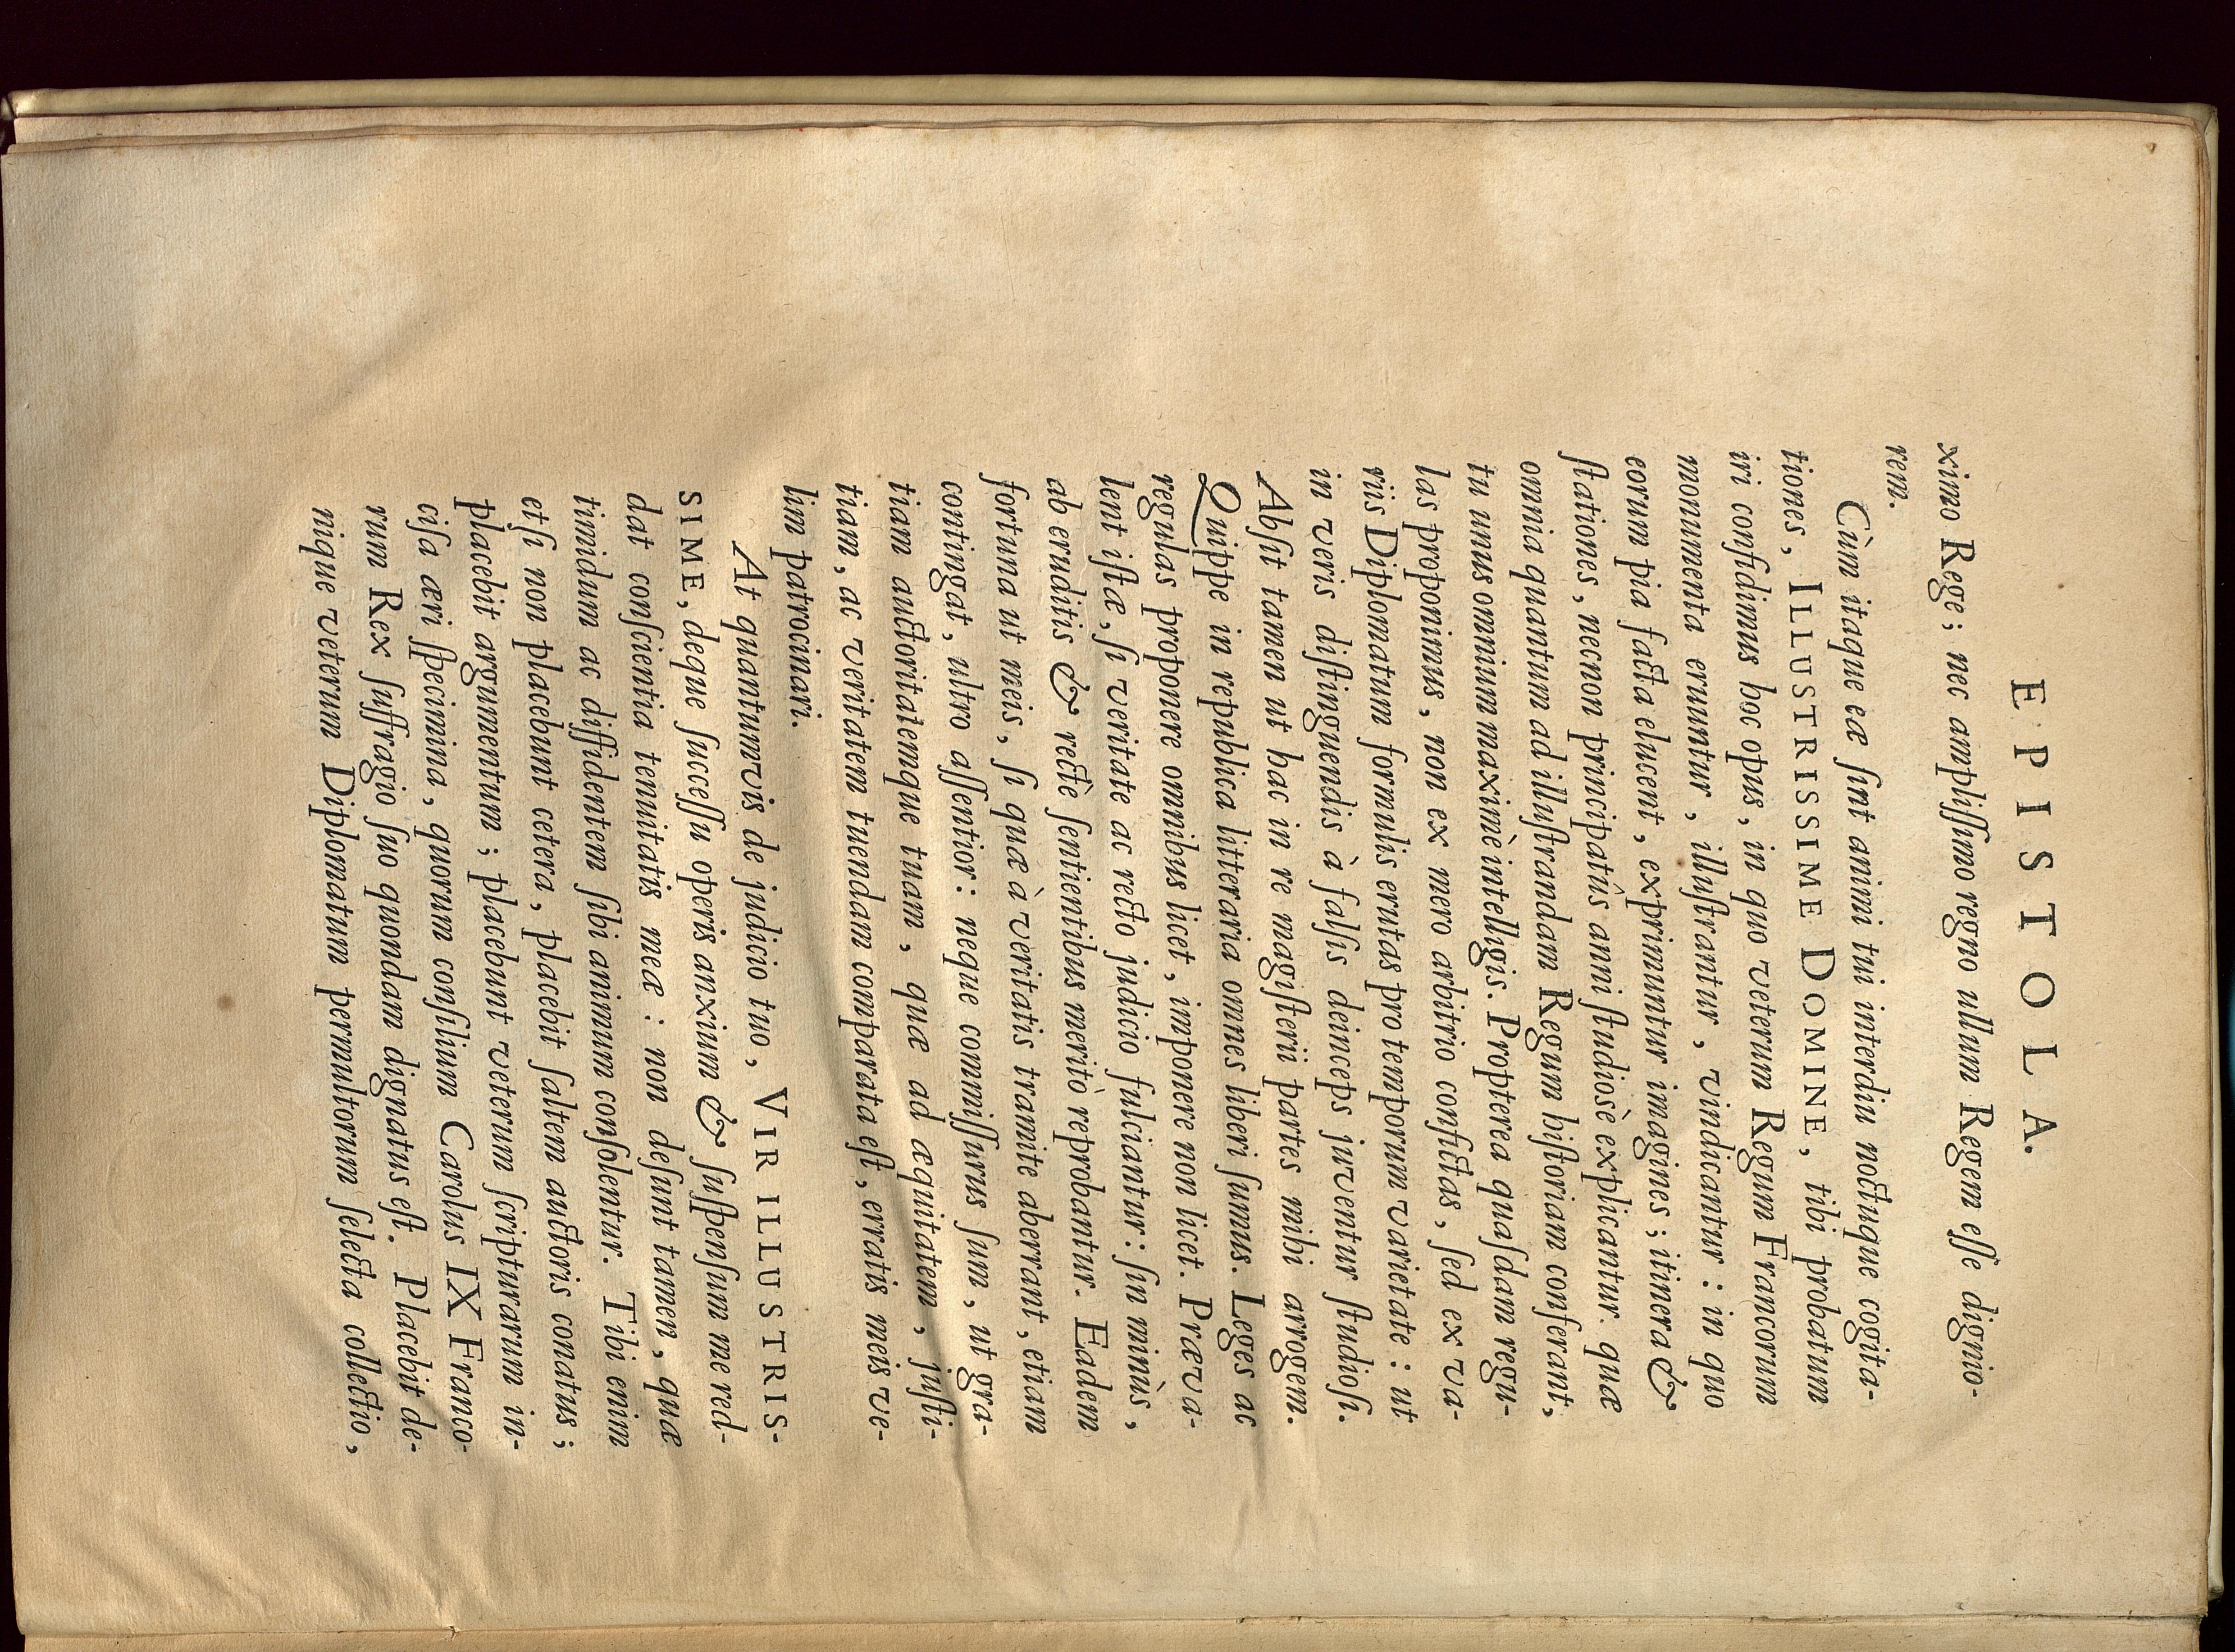 EPISTOLA.
ximo Rege; nec ampliſſimo regno ullum Regem eſſe dignio-
rem.
Cùm itaque eæ ſint animi tui interdiu noctuque cogita-
tiones, ILLUSTRISSIME DOMINE, tibi probatum
iri confidimus hoc opus, in quo veterum Regum Francorum
monumenta eruuntur, illuſtrantur, vindicantur: in quo
eorum pia facta elucent, exprimuntur imagines; itinera &
ſtationes, necnon principatûs anni ſtudioſè explicantur. quæ
omnia quantum ad illuſtrandam Regum hiſtoriam conferant,
tu unus omnium maximè intelligis. Propterea quaſdam regu-
las proponimus, non ex mero arbitrio confictas, ſed ex va-
riis Diplomatum formulis erutas pro temporum varietate: ut
in veris diſtinguendis à falſis deinceps juventur ſtudioſi.
Abſit tamen ut hac in re magiſterii partes mihi arrogem.
Quippe in republica litteraria omnes liberi ſumus. Leges ac
regulas proponere omnibus licet, imponere non licet. Præva-
lent iſtæ, ſi veritate ac recto judicio fulciantur: ſin minùs,
ab eruditis & rectè ſentientibus meritò reprobantur. Eadem
fortuna ut meis, ſi quæ à veritatis tramite aberrant, etiam
contingat, ultro aſſentior: neque commiſſurus ſum, ut gra-
tiam auctoritatemque tuam, quæ ad æquitatem, juſti-
tiam, ac veritatem tuendam comparata eſt, erratis meis ve-
lim patrocinari.
At quantumvis de judicio tuo, VIR ILLUSTRIS-
SIME, deque ſucceſſu operis anxium & ſuſpenſum me red-
dat conſcientia tenuitatis meæ: non deſunt tamen, quæ
timidum ac diffidentem ſibi animum conſolentur. Tibi enim
etſi non placebunt cetera, placebit ſaltem auctoris conatus;
placebit argumentum; placebunt veterum ſcripturarum in-
ciſa æri ſpecimina, quorum conſilium Carolus IX Franco-
rum Rex ſuffragio ſuo quondam dignatus eſt. Placebit de-
nique veterum Diplomatum permultorum ſelecta collectio,